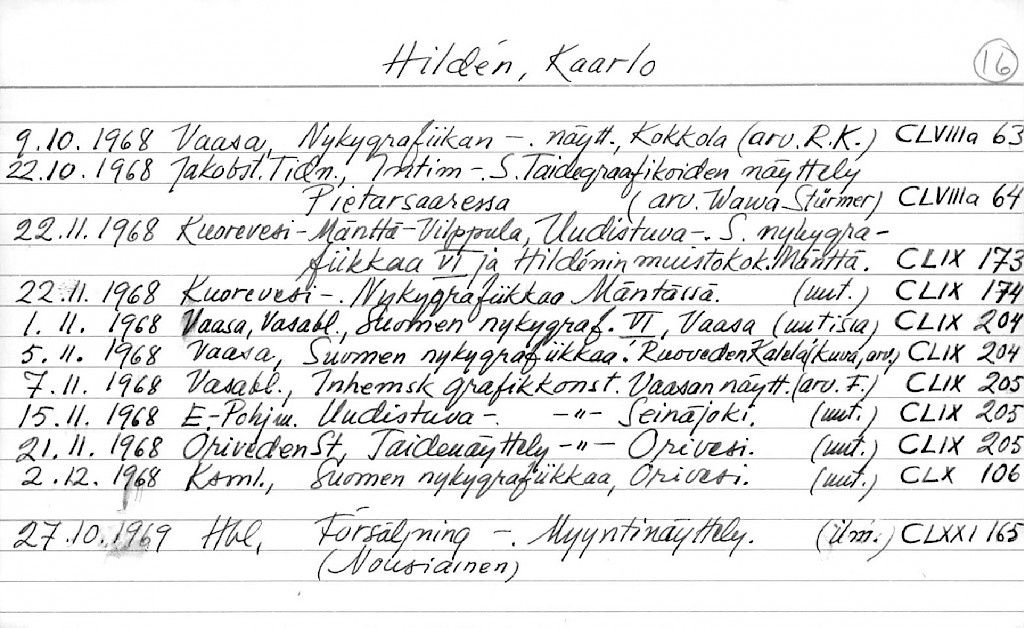 Hildén, Kaarlo 16
9.10.1968 Vaasa, Nykygrafiikan -. näytt., Kokkola (arv. R.K.) CLVIIIa 63
22.10.1968 Jakobst. Tidn., Intim -. S. Taidegraafikoiden näyttely
Pietarsaaressa (arv. Wawa Stürmer) CLVIIIa 64
22.11.1968 Kuorevesi-Mänttä-Vilppula, Uudistuva -. S. nykygra-
fiikkaa VI ja Hildénin muistokok. Mänttä. CLIX 173
22.11.1968 Kuorevesi -. Nykygrafiikkaa Mäntässä. (uut.) CLIX 174
1.11.1968 Vaasa, Vasabl., Suomen nykygraf. VI, Vaasa (uutisia) CLIX 204
5.11.1968 Vaasa, Suomen nykygrafiikkaa: Ruoveden Kalela (kuva, arv.) CLIX 204
7.11.1968 Vasabl., Inhemsk grafikkonst. Vaasan näytt. (arv. F.) CLIX 205
15.11.1968 E-Pohjm. Uudistuva -. -"- Seinäjoki. (uut.) CLIX 205
21.11.1968 Oriveden St, Taidenäyttely -"- Orivesi. (uut.) CLIX 205
2.12.1968 Ksml., Suomen nykygrafiikkaa, Orivesi. (uut.) CLX 106
27.10.1969 Hbl, Försäljning -. Myyntinäyttely. (ilm.) CLXXI 165
(Nousiainen)